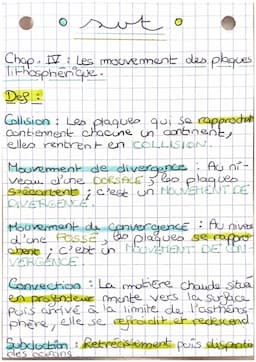 svt
Chap. IV : Les mouvement des plaques
lithosphérique.
Def :
Collision : Les plaques qui se rapprochent
contiennent chacune un continent,
elles rentrent en COLLISION.
Mouvement de divergence : Au ni-
veau d'une DORSALE, les plaques
s'écartent ; c'est un MOUVEMENT DE
DIVERGENCE.
Mouvement de convergence : Au niveau
d'une FOSSE, les plaques se rappro
chent ; c'est un MOUVEMENT DE CON
VERGENCE.
Convection : La matière chaude située
en profondeur monte vers la surface
puis arrivé à la limite de l'asthénos-
phère, elle se refroidit et redescend.
Subduction : Retrécissement puis disparition
des océans